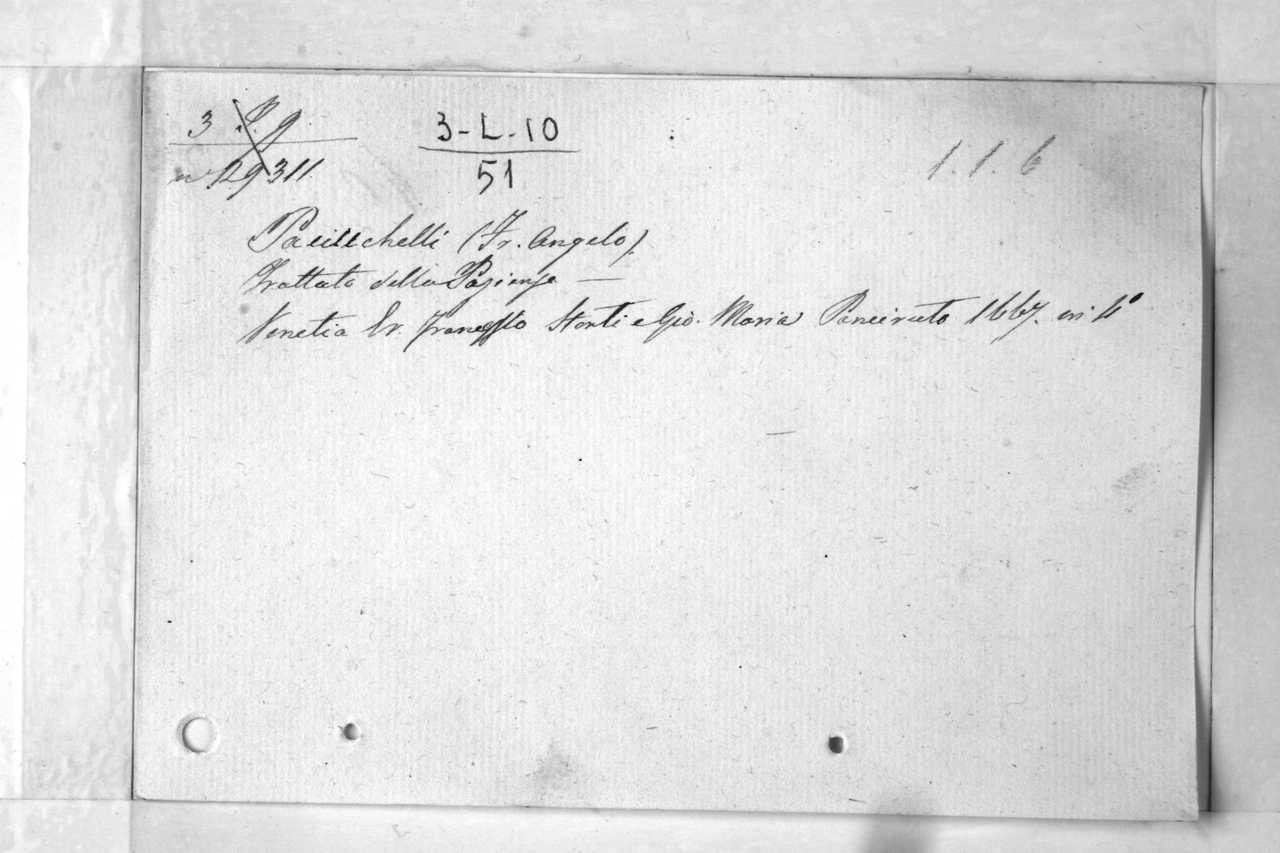 3 P. 9
n 129311
3-L-10
51
1. 1. 6
Paciuchelli (Fr. Angelo).
Trattato della Pazienza —
Venetia Er. Storti e Gio. Maria Pancirutto 1667. in 4°